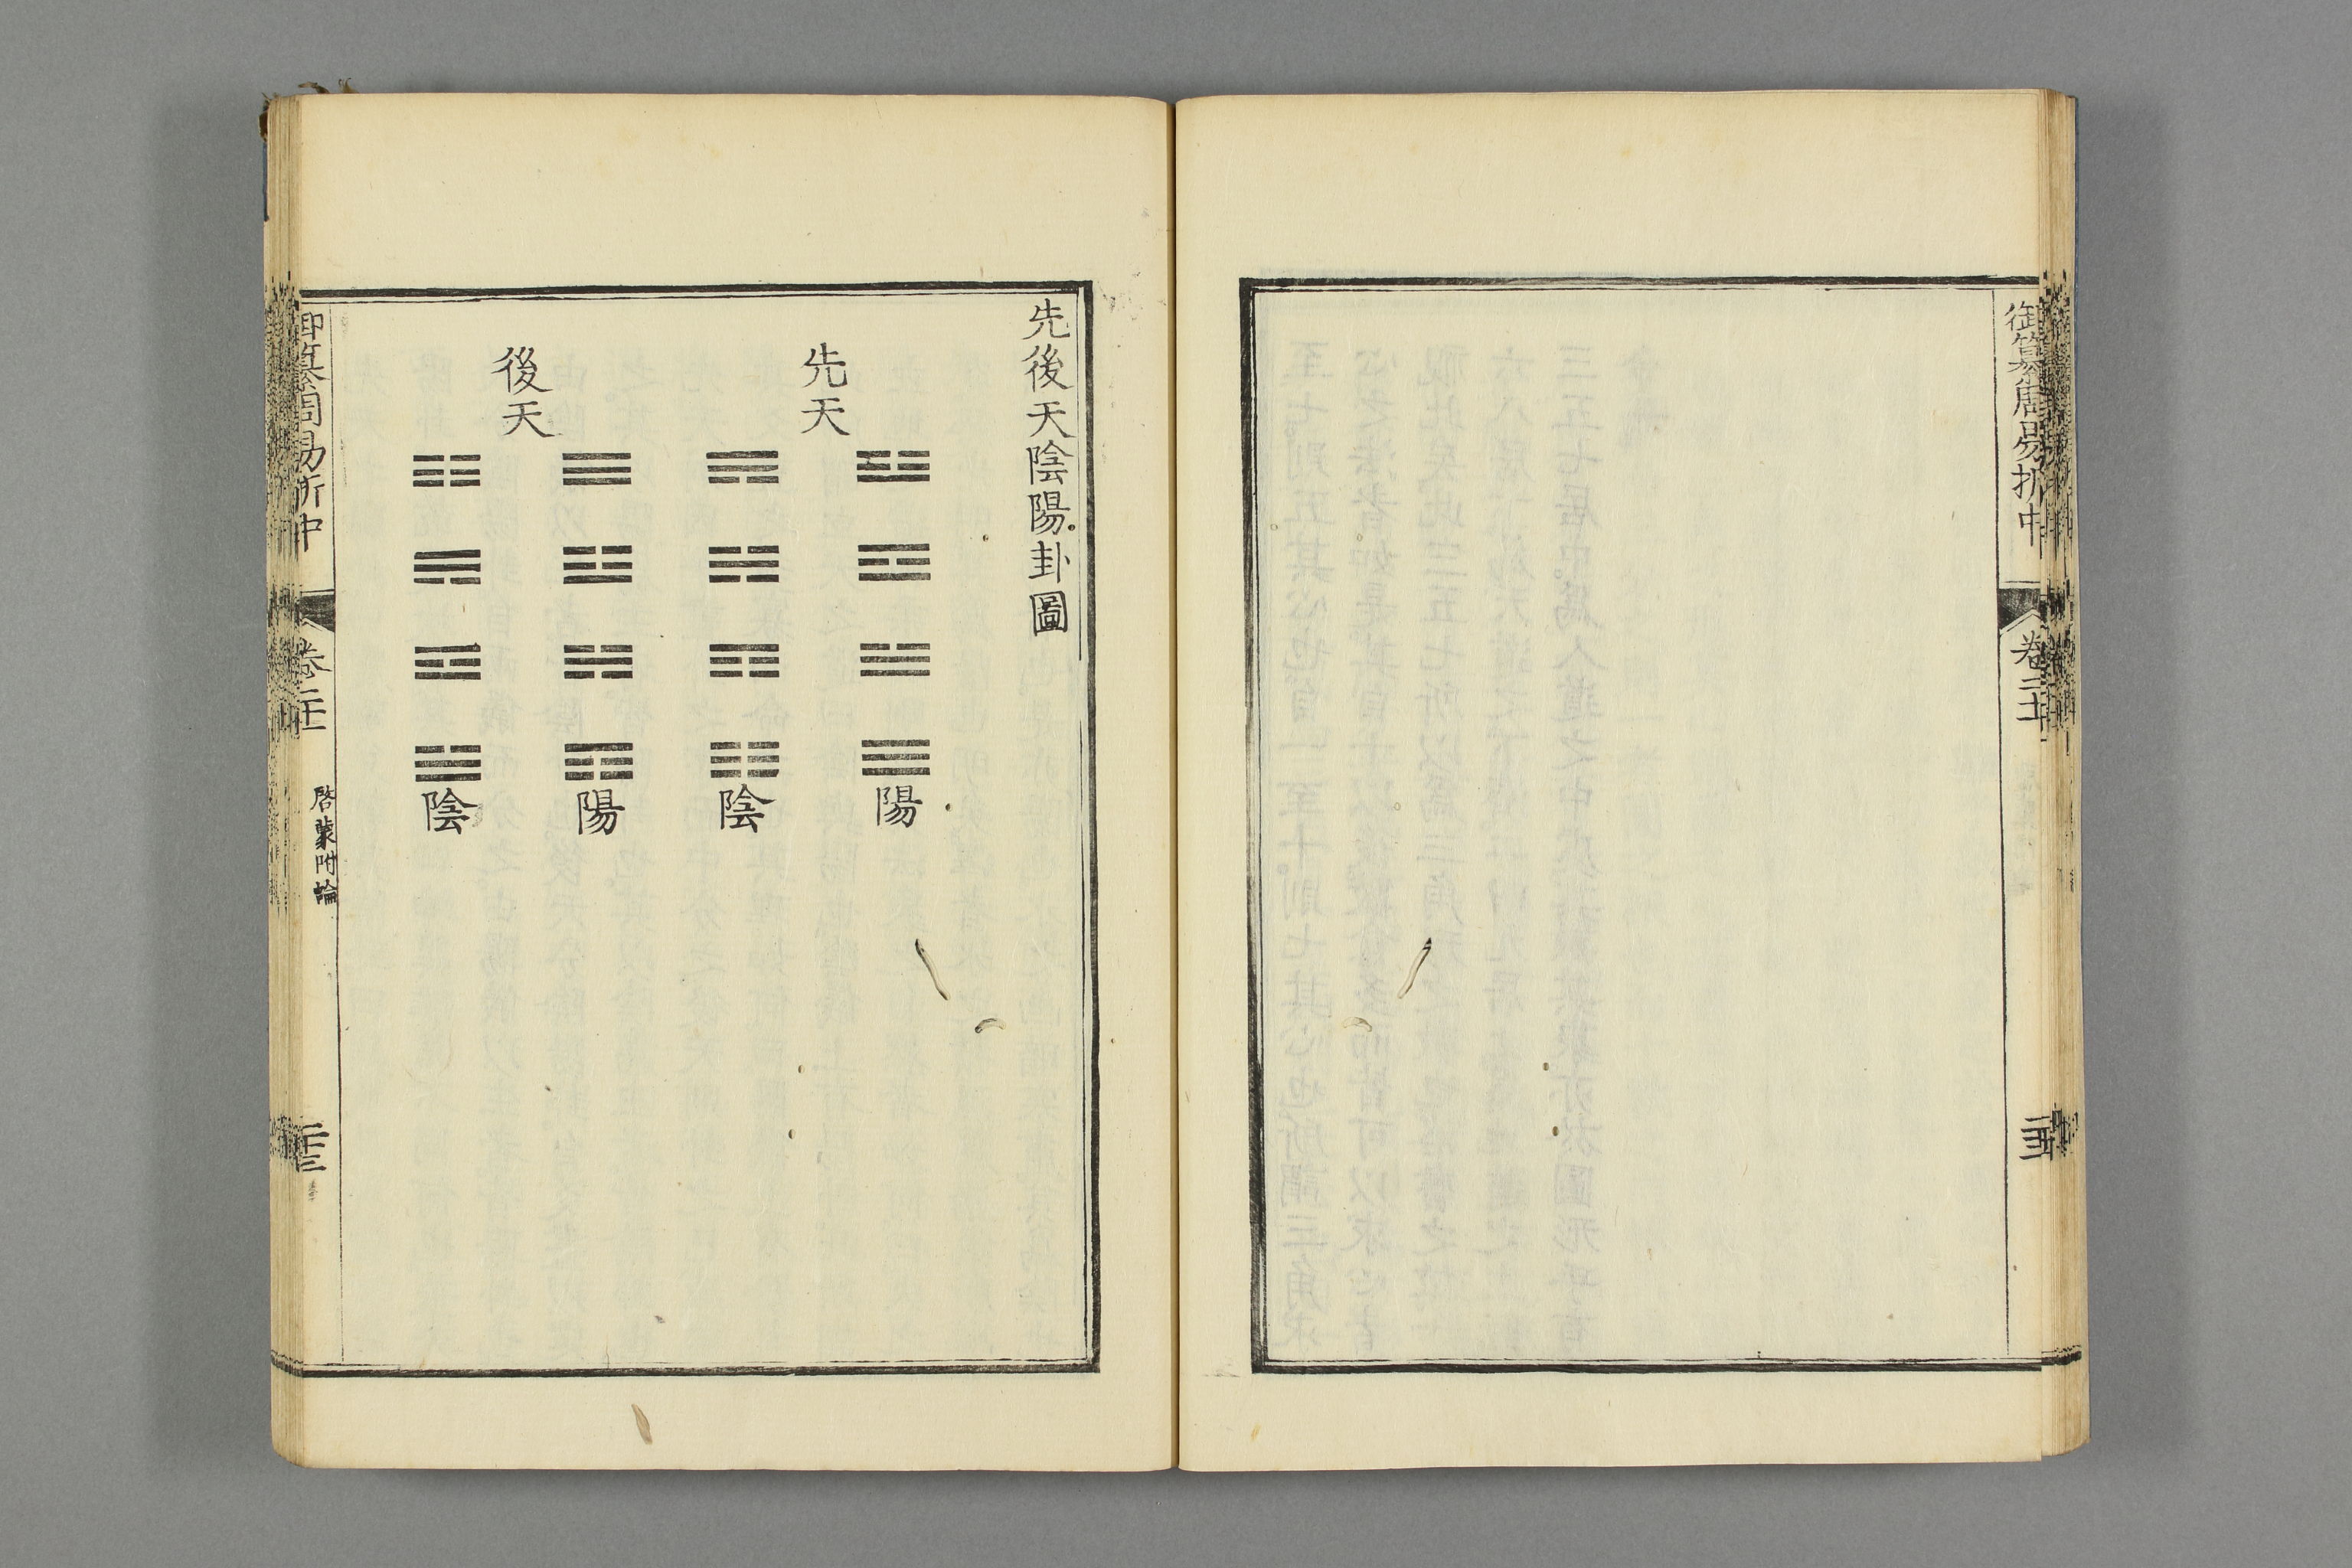 御纂周易折中
卷二十一
先後天陰陽卦圖
先天
陽
陰
後天
陽
陰
御纂周易折中
卷二十一
啓蒙附論
二十三